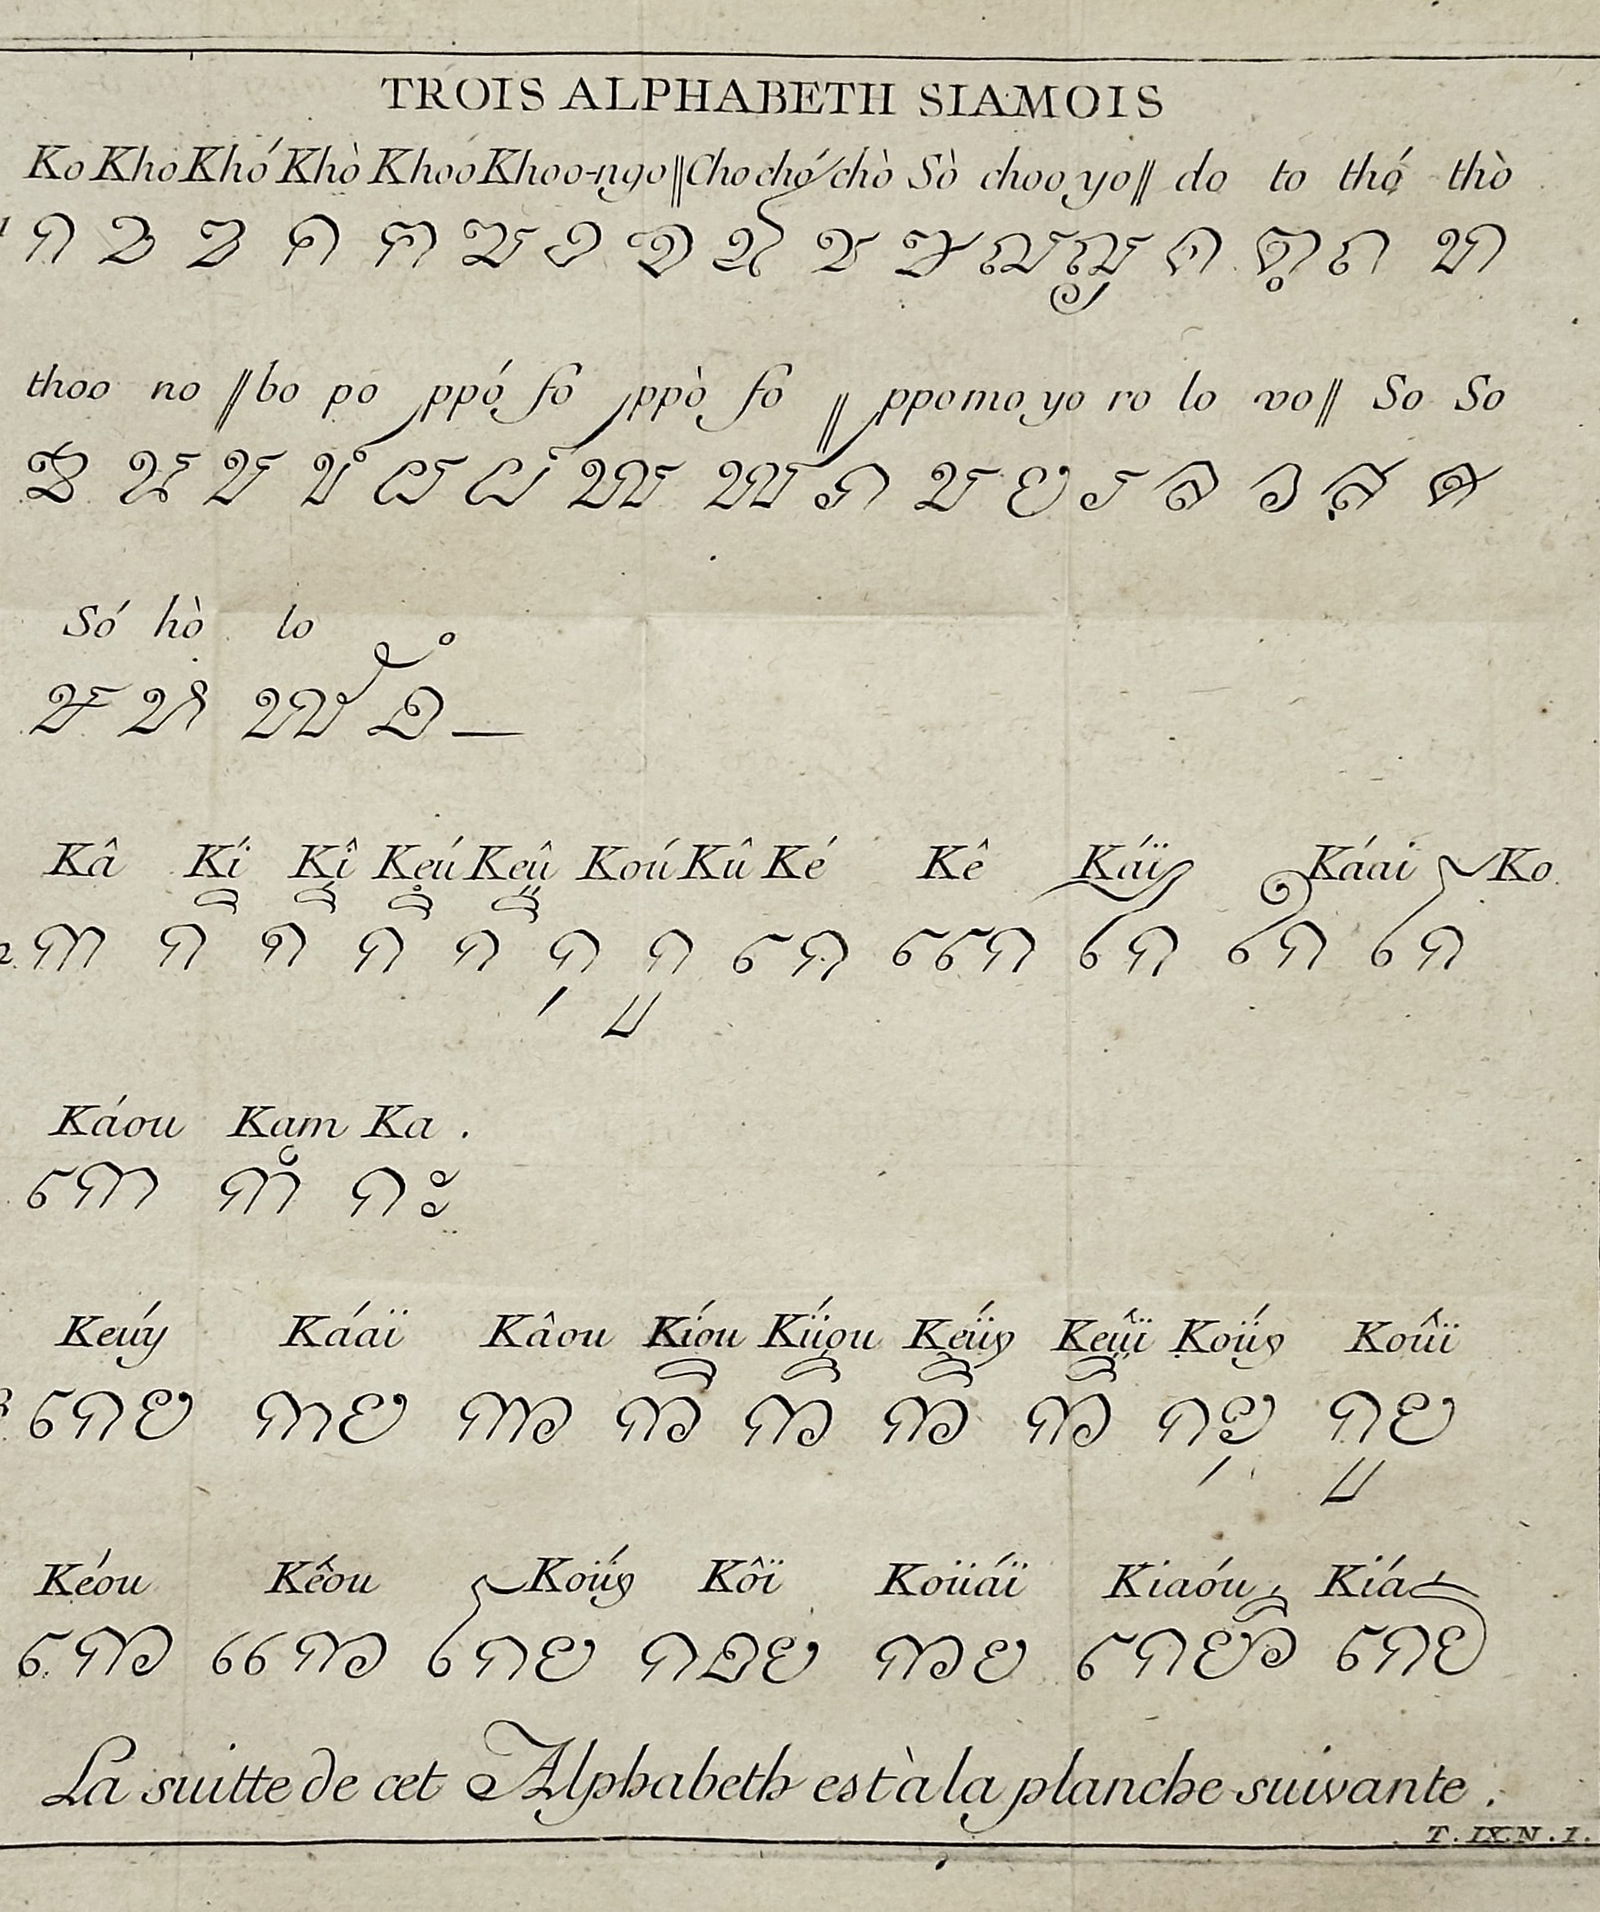 TROIS ALPHABETH SIAMOIS
Ko Kho Khó Khò Khoo Khoo-ngo || Cho chó chò Sò choo yo || do to thó thò
1 ก ข ฃ ค ฅ ฆ ง จ ฉ ช ซ ญ ด ต ถ ท
thoo no || bo po ppó fo ppò fo || ppo mo yo ro lo vo || So So
ธ น บ ป ผ ฝ พ ฟ ภ ม ย ร ล ว ส ศ
Só hò lo
ษ ห ฬ อ
Kâ Kí Kî Keú Keû Koú Kû Ké Kê Káï Káai Ko
2. กา กิ กี กึ กื กุ กู เก แก ไก ใก โก
Káou Kam Ka.
เกา กำ กะ
Keúy Káaï Kâou Kíou Kíïou Keüy Keûï Koüy Koûï
3 เกย กาย กาว กุย กูย
Kéou Kêou Koüy Kôï Koüáï Kiaóu Kiá
เกว แกว โกย กอย กวย
La suitte de cet Alphabeth est à la planche suivante.
T. IX. N. 1.